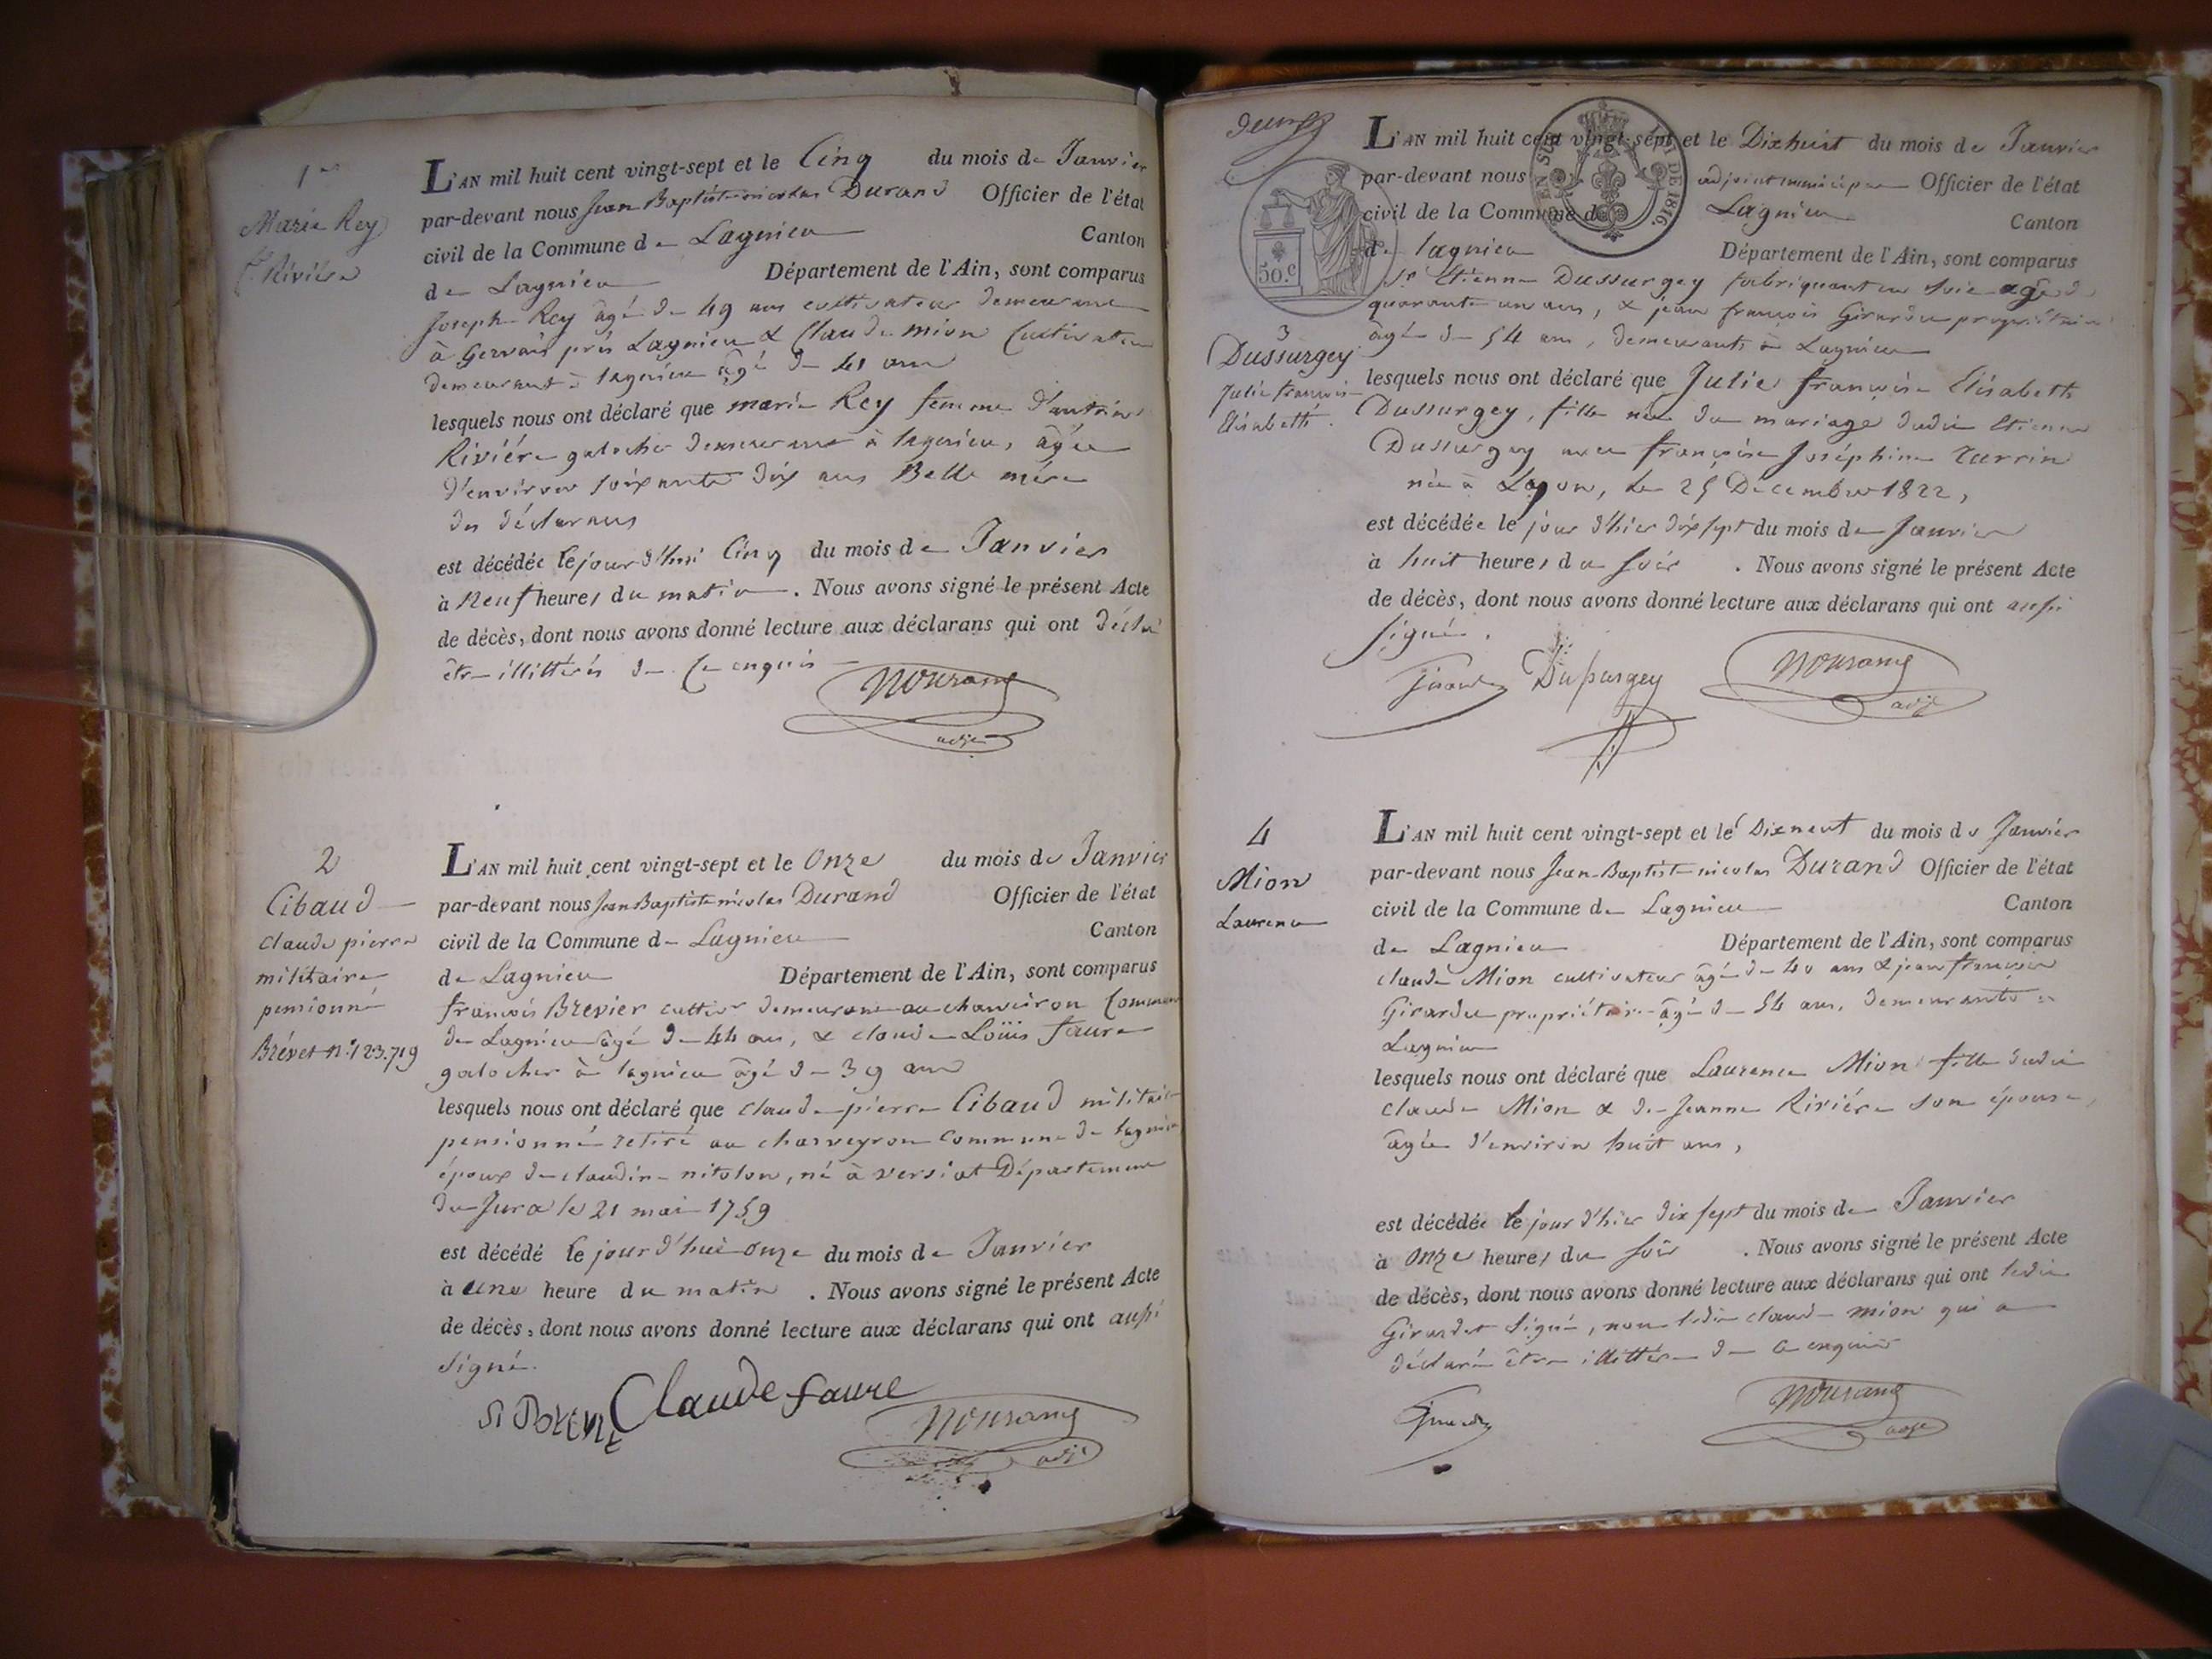 1er
Marie Rey
fe Rivière
L'AN mil huit cent vingt-sept et le Cinq du mois de Janvier
par-devant nous Jean Baptiste nicolas Durand Officier de l'état
civil de la Commune de Lagnieu Canton
de Lagnieu Département de l'Ain, sont comparus
Joseph Rey âgé de 49 ans cultivateur demeurant
à Gervais près Lagnieu & Claude mion Cultivateur
demeurant à lagnieu âgé de 41 ans
lesquels nous ont déclaré que marie Rey femme d'antoine
Rivière galocher demeurant à lagnieu, âgée
d'environ soixante dix ans Belle mère
des déclarans
est décédée le jour d'hui Cinq du mois de Janvier
à Neuf heures du matin . Nous avons signé le présent Acte
de décès, dont nous avons donné lecture aux déclarans qui ont déclaré
être illittérés de ce enquis
adjt
2
Cibaud
claude pierre
militaire
pensionné
Brévet n° 123.719
L'AN mil huit cent vingt-sept et le Onze du mois de Janvier
par-devant nous Jean Baptiste nicolas Durand Officier de l'état
civil de la Commune de Lagnieu Canton
de Lagnieu Département de l'Ain, sont comparus
françois Brevier cultivr demeurant au charveiron Commune
de Lagnieu âgé de 44 ans, & claude Loüis faure
galocher à lagnieu âgé de 39 ans
lesquels nous ont déclaré que claude pierre Cibaud militaire
pensionné retiré au charveyron commune de lagnieu
époux de claudine nitolon, né à versiat Département
du Jura le 21 mai 1759
est décédé le jour d'hui onze du mois de Janvier
à une heure du matin . Nous avons signé le présent Acte
de décès, dont nous avons donné lecture aux déclarans qui ont aussi
signé.
Claude faure
adjt
L'AN mil huit cent vingt-sept et le Dixhuit du mois de Janvier
par-devant nous adjoint municipal Officier de l'état
civil de la Commune de Lagnieu Canton
de lagnieu Département de l'Ain, sont comparus
Sr Etienne Dussurgey fabriquant en soie âgé de
quarante un ans, & jean françois Girardu propriétaire
âgé de 54 ans, demeurants à Lagnieu
50.c
DE 1816.
3
Dussurgey
Julie françoise
Elisabeth.
lesquels nous ont déclaré que Julie françoise Elisabeth
Dussurgey, fille née du mariage dudit Etienne
Dussurgey avec françoise Joséphine
née à Lagnieu, le 25 Décembre 1822,
est décédée le jour d'hier dix sept du mois de Janvier
à huit heures du soir . Nous avons signé le présent Acte
de décès, dont nous avons donné lecture aux déclarans qui ont aussi
signé.
Dussurgey
adjt
4
Mion
Laurence
L'AN mil huit cent vingt-sept et le Dixneuf du mois de Janvier
par-devant nous Jean-Baptiste nicolas Durand Officier de l'état
civil de la Commune de Lagnieu Canton
de Lagnieu Département de l'Ain, sont comparus
claude Mion cultivateur âgé de 40 ans & jean françois
Girardu propriétaire âgé de 54 ans, demeurants à
Lagnieu
lesquels nous ont déclaré que Laurence Mion fille dudit
claude Mion & de Jeanne Rivière son épouse,
âgée d'environ huit ans,
est décédée le jour d'hier dix sept du mois de Janvier
à Onze heures du soir . Nous avons signé le présent Acte
de décès, dont nous avons donné lecture aux déclarans qui ont ledit
Girardet signé, non ledit claude mion qui a
déclaré être illittéré de ce enquis
adjt